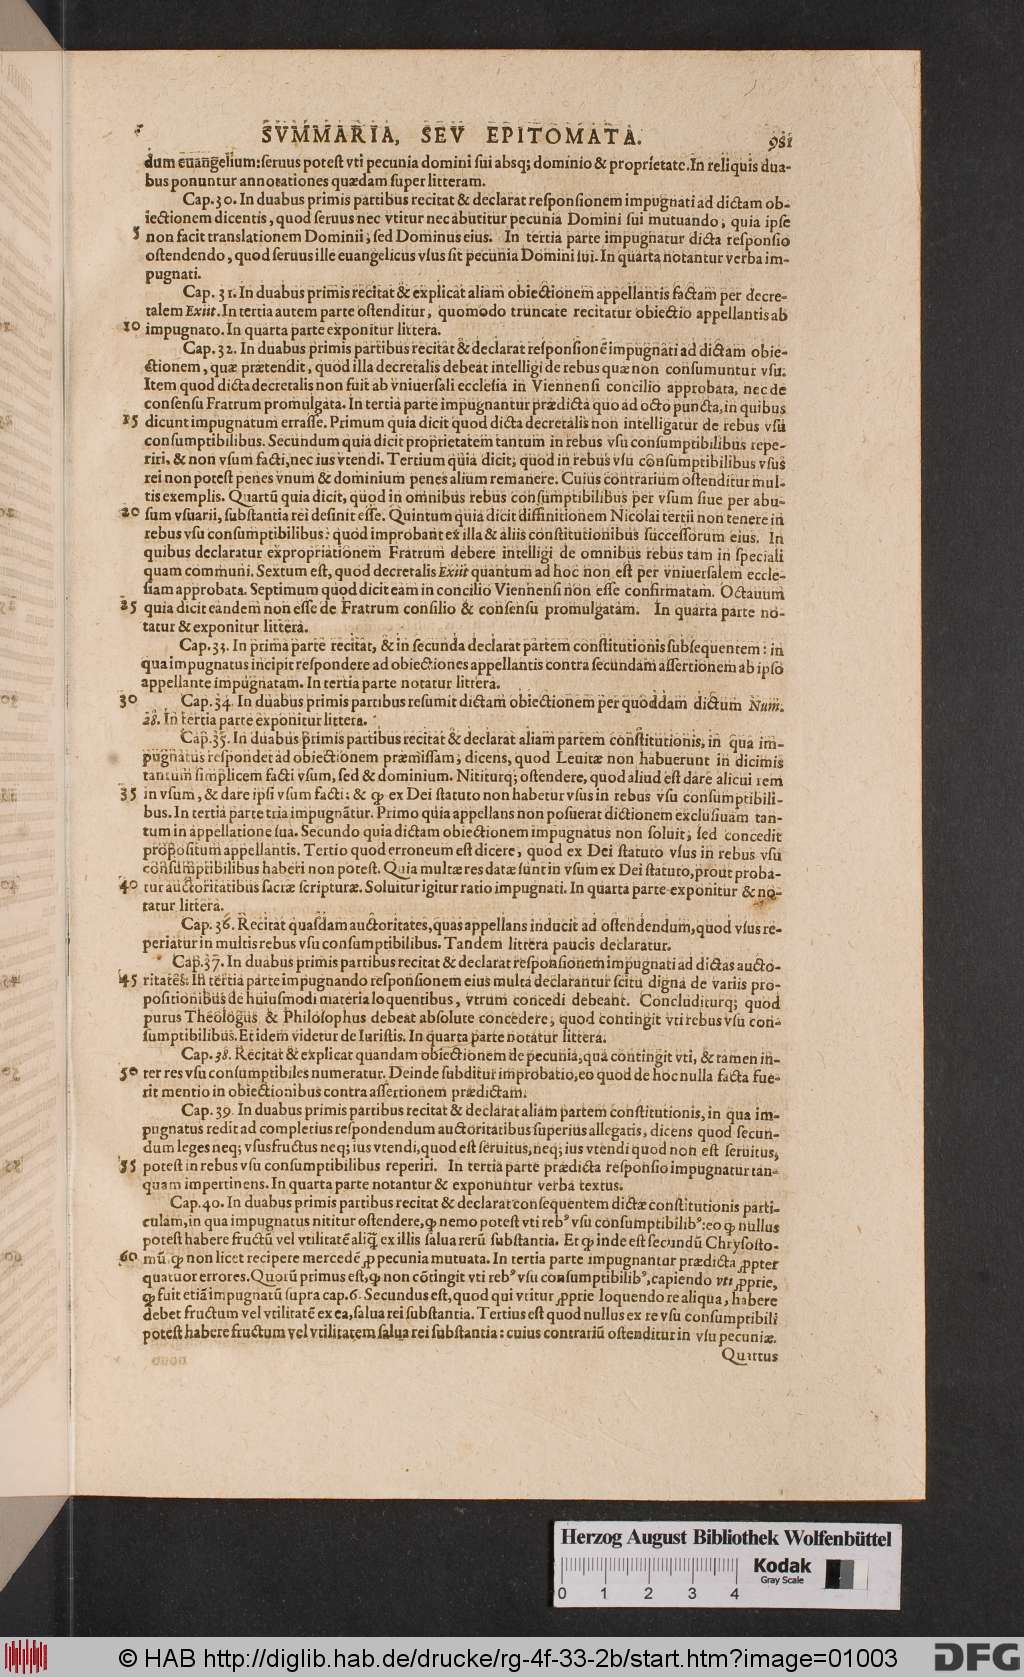 SVMMARIA, SEV EPITOMATA. 981
dum euangelium: seruus potest vti pecunia domini sui absq; dominio & proprietate. In reliquis dua-
bus ponuntur annotationes quædam super litteram.
Cap. 30. In duabus primis partibus recitat & declarat responsionem impugnati ad dictam ob-
iectionem dicentis, quod seruus nec vtitur nec abutitur pecunia Domini sui mutuando, quia ipse
5 non facit translationem Dominii; sed Dominus eius. In tertia parte impugnatur dicta responsio
ostendendo, quod seruus ille euangelicus vsus sit pecunia Domini sui. In quarta notantur verba im-
pugnati.
Cap. 31. In duabus primis recitat & explicat aliam obiectionem appellantis factam per decre-
talem Exiit. In tertia autem parte ostenditur, quomodo truncate recitatur obiectio appellantis ab
10 impugnato. In quarta parte exponitur littera.
Cap. 32. In duabus primis partibus recitat & declarat responsionē impugnati ad dictam obie-
ctionem, quæ prætendit, quod illa decretalis debeat intelligi de rebus quæ non consumuntur vsu.
Item quod dicta decretalis non fuit ab vniuersali ecclesia in Viennensi concilio approbata, nec de
consensu Fratrum promulgata. In tertia parte impugnantur prædicta quo ad octo puncta, in quibus
15 dicunt impugnatum errasse. Primum quia dicit quod dicta decretalis non intelligatur de rebus vsu
consumptibilibus. Secundum quia dicit proprietatem tantum in rebus vsu consumptibilibus repe-
riri, & non vsum facti, nec ius vtendi. Tertium quia dicit, quod in rebus vsu consumptibilibus vsus
rei non potest penes vnum & dominium penes alium remanere. Cuius contrarium ostenditur mul-
tis exemplis. Quartū quia dicit, quod in omnibus rebus consumptibilibus per vsum siue per abu-
20 sum vsuarii, substantia rei desinit esse. Quintum quia dicit diffinitionem Nicolai tertii non tenere in
rebus vsu consumptibilibus: quod improbant ex illa & aliis constitutionibus successorum eius. In
quibus declaratur expropriationem Fratrum debere intelligi de omnibus rebus tam in speciali
quam communi. Sextum est, quod decretalis Exiit quantum ad hoc non est per vniuersalem eccle-
siam approbata. Septimum quod dicit eam in concilio Viennensi non esse confirmatam. Octauum
25 quia dicit eandem non esse de Fratrum consilio & consensu promulgatam. In quarta parte no-
tatur & exponitur littera.
Cap. 33. In prima parte recitat, & in secunda declarat partem constitutionis subsequentem: in
qua impugnatus incipit respondere ad obiectiones appellantis contra secundam assertionem ab ipso
appellante impugnatam. In tertia parte notatur littera.
30 Cap. 34. In duabus primis partibus resumit dictam obiectionem per quoddam dictum Num.
28. In tertia parte exponitur littera.
Cap. 35. In duabus primis partibus recitat & declarat aliam partem constitutionis, in qua im-
pugnatus respondet ad obiectionem præmissam; dicens, quod Leuitæ non habuerunt in dicimis
tantum simplicem facti vsum, sed & dominium. Nititurq; ostendere, quod aliud est dare alicui rem
35 in vsum, & dare ipsi vsum facti: & ꝙ ex Dei statuto non habetur vsus in rebus vsu consumptibili-
bus. In tertia parte tria impugnātur. Primo quia appellans non posuerat dictionem exclusiuam tan-
tum in appellatione sua. Secundo quia dictam obiectionem impugnatus non soluit; sed concedit
propositum appellantis. Tertio quod erroneum est dicere, quod ex Dei statuto vsus in rebus vsu
consumptibilibus haberi non potest. Quia multæ res datæ sunt in vsum ex Dei statuto, prout proba-
40 tur auctoritatibus sacræ scripturæ. Soluitur igitur ratio impugnati. In quarta parte exponitur & no-
tatur littera.
Cap. 36. Recitat quasdam auctoritates, quas appellans inducit ad ostendendum, quod vsus re-
periatur in multis rebus vsu consumptibilibus. Tandem littera paucis declaratur.
Cap. 37. In duabus primis partibus recitat & declarat responsionem impugnati ad dictas aucto-
45 ritates. In tertia parte impugnando responsionem eius multa declarantur scitu digna de variis pro-
positionibus de huiusmodi materia loquentibus, vtrum concedi debeant. Concluditurq; quod
purus Theologus & Philosophus debeat absolute concedere, quod contingit vti rebus vsu con-
sumptibilibus. Et idem videtur de Iuristis. In quarta parte notatur littera.
Cap. 38. Recitat & explicat quandam obiectionem de pecunia, qua contingit vti, & tamen in-
50 ter res vsu consumptibiles numeratur. Deinde subditur improbatio, eo quod de hoc nulla facta fue-
rit mentio in obiectionibus contra assertionem prædictam.
Cap. 39. In duabus primis partibus recitat & declarat aliam partem constitutionis, in qua im-
pugnatus redit ad completius respondendum auctoritatibus superius allegatis, dicens quod secun-
dum leges neq; vsusfructus neq; ius vtendi, quod est seruitus, neq; ius vtendi quod non est seruitus,
55 potest in rebus vsu consumptibilibus reperiri. In tertia parte prædicta responsio impugnatur tan-
quam impertinens. In quarta parte notantur & exponuntur verba textus.
Cap. 40. In duabus primis partibus recitat & declarat consequentem dictæ constitutionis parti-
culam, in qua impugnatus nititur ostendere, ꝙ nemo potest vti rebꝰ vsu consumptibilibꝰ: eo ꝙ nullus
potest habere fructū vel vtilitatē aliq̄ ex illis salua rerū substantia. Et ꝙ inde est secundū Chrysosto-
60 mū, ꝙ non licet recipere mercedē ꝓ pecunia mutuata. In tertia parte impugnantur prædicta ꝓpter
quatuor errores. Quorū primus est, ꝙ non cōtingit vti rebꝰ vsu consumptibilibꝰ, capiendo vti ꝓprie,
ꝙ fuit etiā impugnatū supra cap. 6. Secundus est, quod qui vtitur ꝓprie loquendo re aliqua, habere
debet fructum vel vtilitatē ex ea, salua rei substantia. Tertius est quod nullus ex re vsu consumptibili
potest habere fructum vel vtilitatem salua rei substantia: cuius contrariū ostenditur in vsu pecuniæ.
Quartus
Herzog August Bibliothek Wolfenbüttel
Kodak
Gray Scale
0 1 2 3 4
© HAB http://diglib.hab.de/drucke/rg-4f-33-2b/start.htm?image=01003
DFG